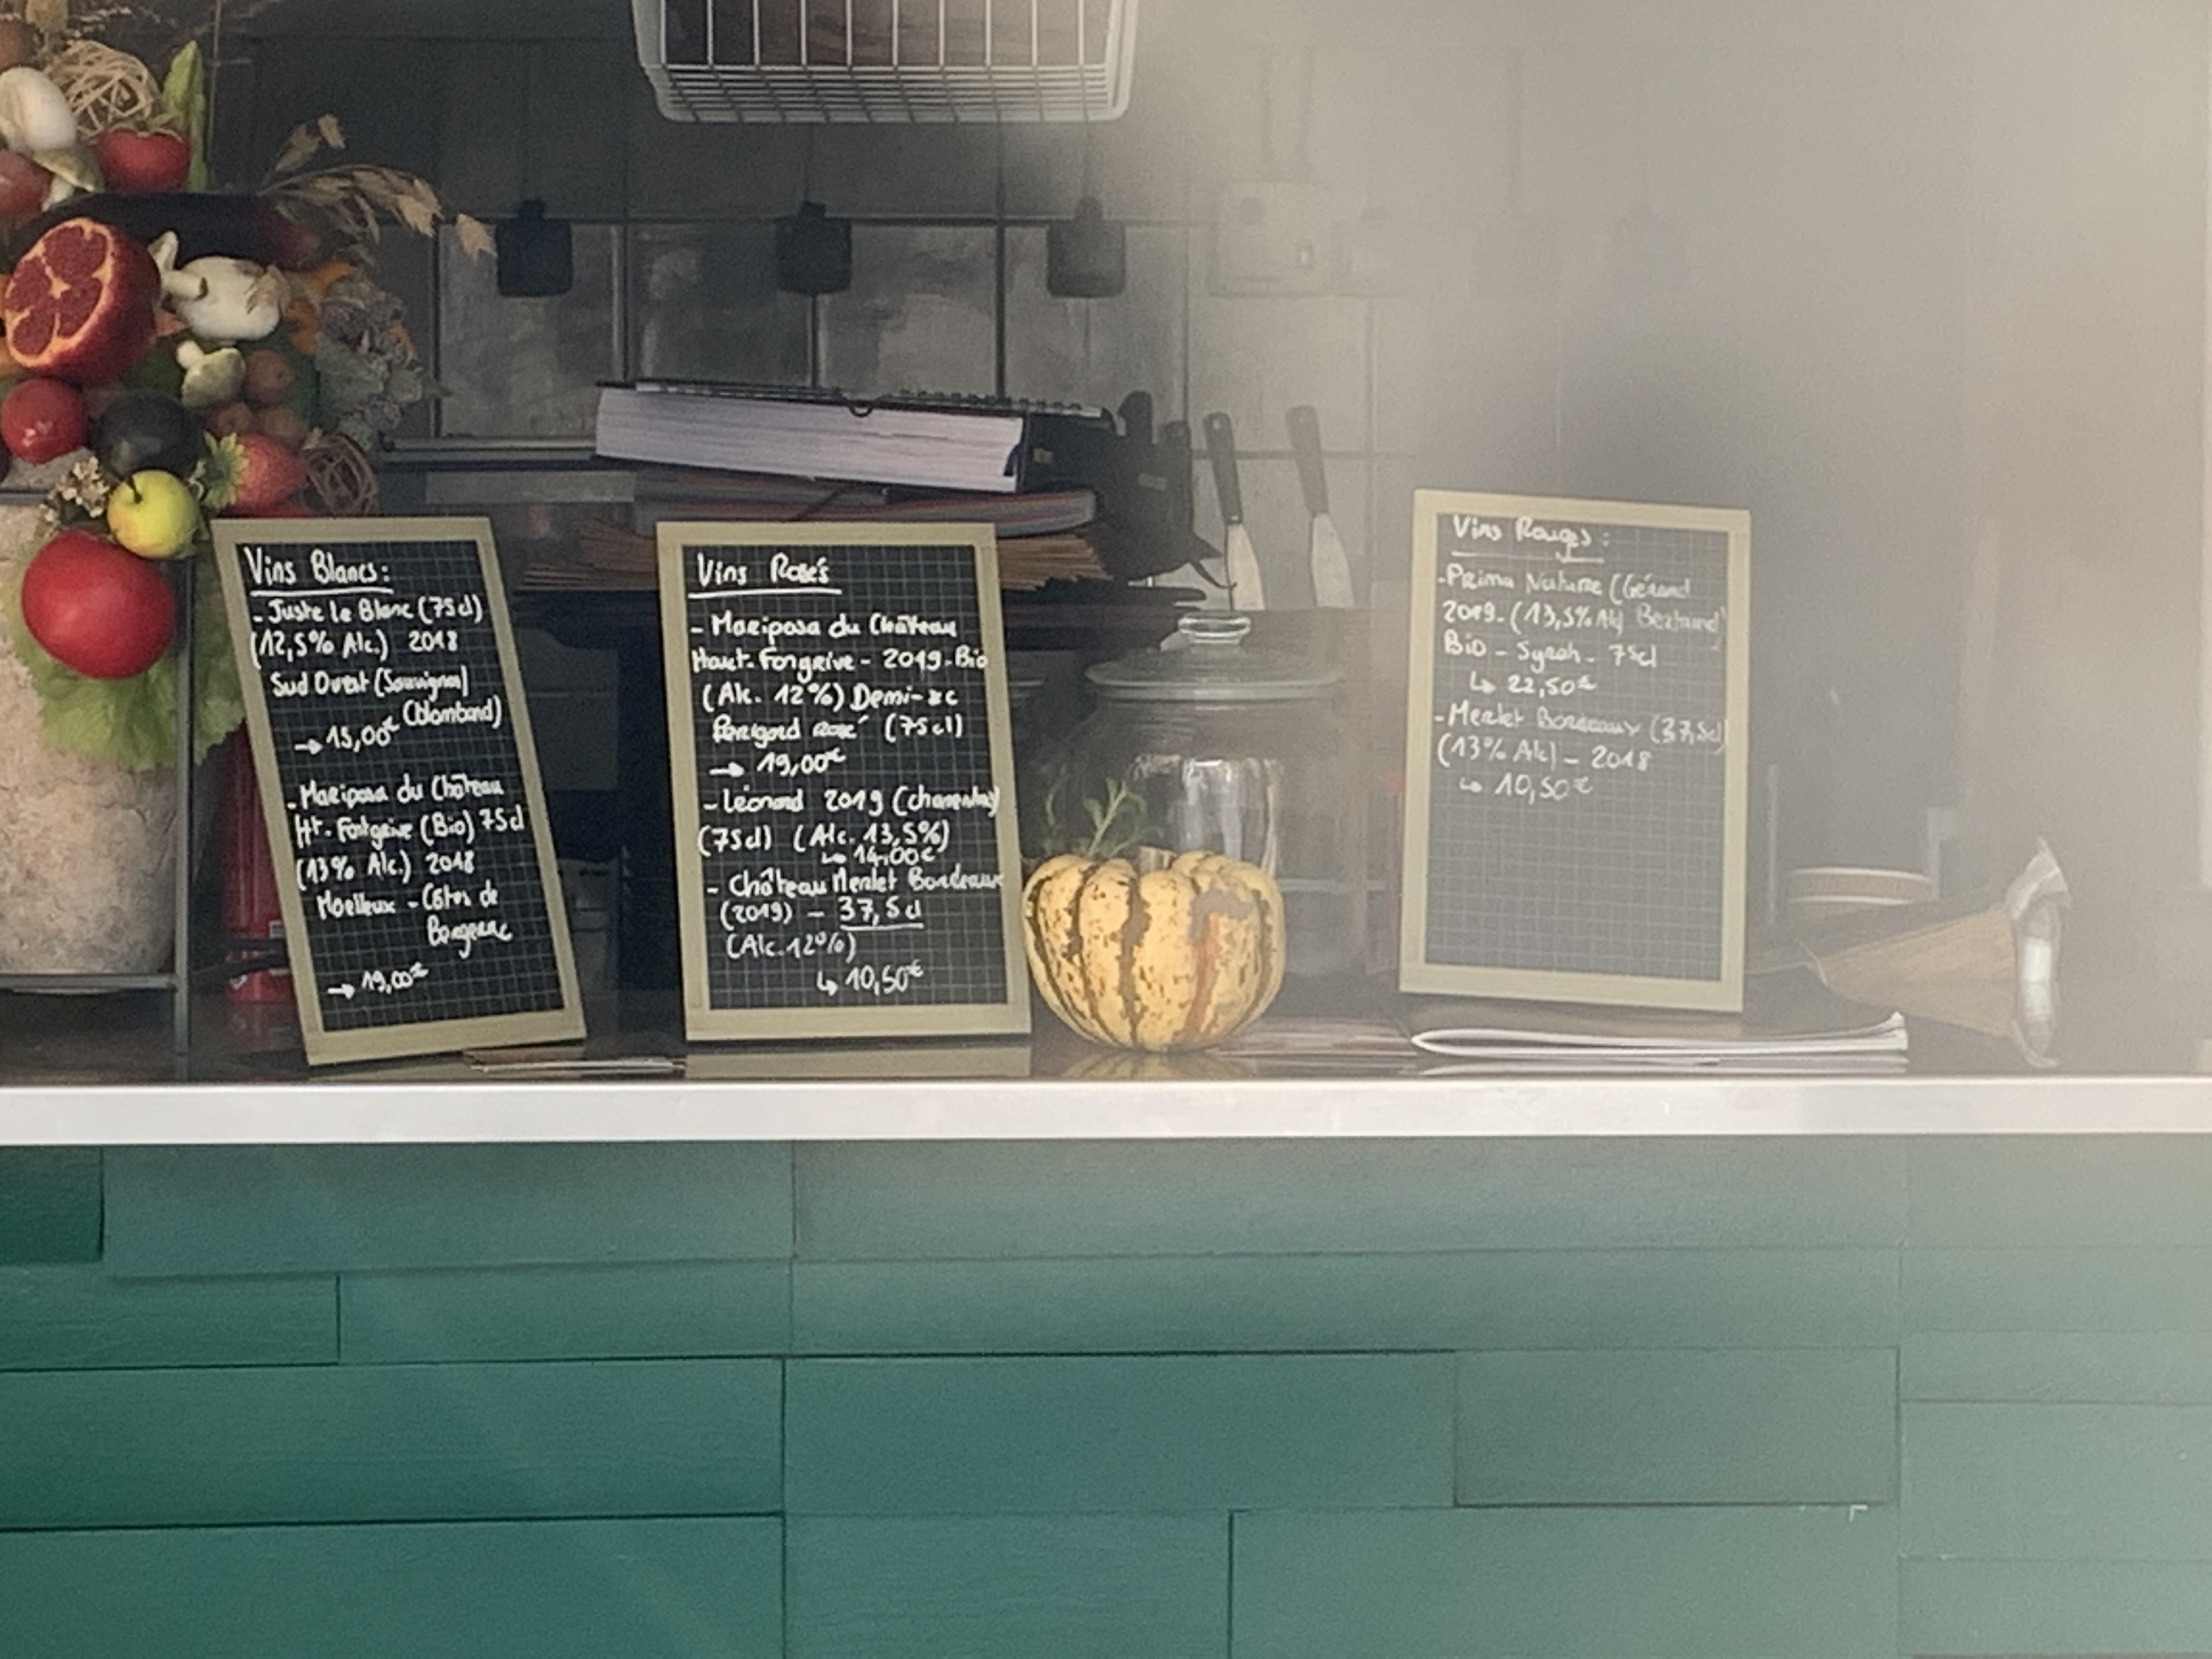 Vins Blancs:
- Juste le Blanc (75cl)
(12,5% Alc.) 2018
Sud Ouest (Sauvignon)
(Colombard)
→ 15,00€
- Mariposa du Château
Ht. Fontgrive (Bio) 75cl
(13% Alc.) 2018
Moelleux - Côtes de
Bergerac
→ 19,00€
Vins Rosés
- Mariposa du Château
Haut-Fongrive - 2019-Bio
(Alc. 12%) Demi-sec
Périgord rosé (75cl)
→ 19,00€
- Léonard 2019 (charentais)
(75cl) (Alc. 13,5%)
↳ 14,00€
- Château Merlet Bordeaux
(2019) - 37,5cl
(Alc. 12%)
↳ 10,50€
Vins Rouges:
- Prima Nature (Gérard
2019- (13,5% Alc) Bertrand)
Bio - Syrah - 75cl
↳ 22,50€
- Merlet Bordeaux (37,5cl)
(13% Alc) - 2018
↳ 10,50€